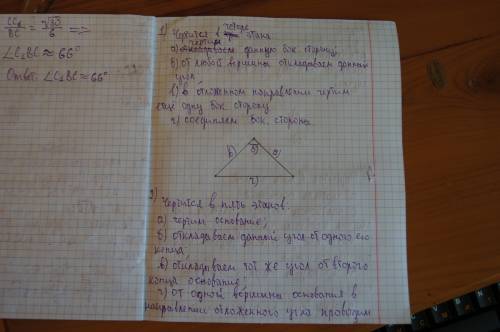 CC₂/BC = √33/6 ⇒
∠C₂BC ≈ 66°
Ответ: ∠C₂BC ≈ 66°
1) Чертится в четыре этапа
а) чертим данную бок. сторону
б) от любой вершины откладываем данный
угол
в) в отложенном направлении чертим
ещё одну бок. сторону
г) соединяем бок. стороны
в) б) а)
г)
2) Чертится в пять этапов:
а) чертим основание;
б) откладываем данный угол от одного его
конца
в) откладываем тот же угол от второго
конца основания
г) от одной вершины основания в
направлении отложенного угла проводим